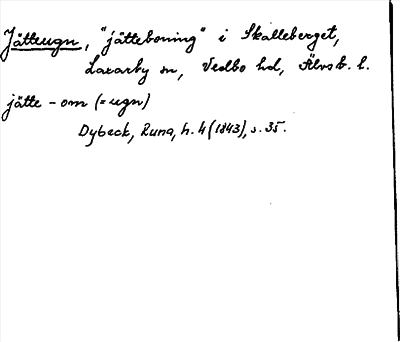 Jätteugn, "jätteboning" i Skålleberget,
Laxarby sn, Vedbo hd, Älvsb. l.
jätte - omn (= ugn)
Dybeck, Runa, h. 4 (1843), s. 35.